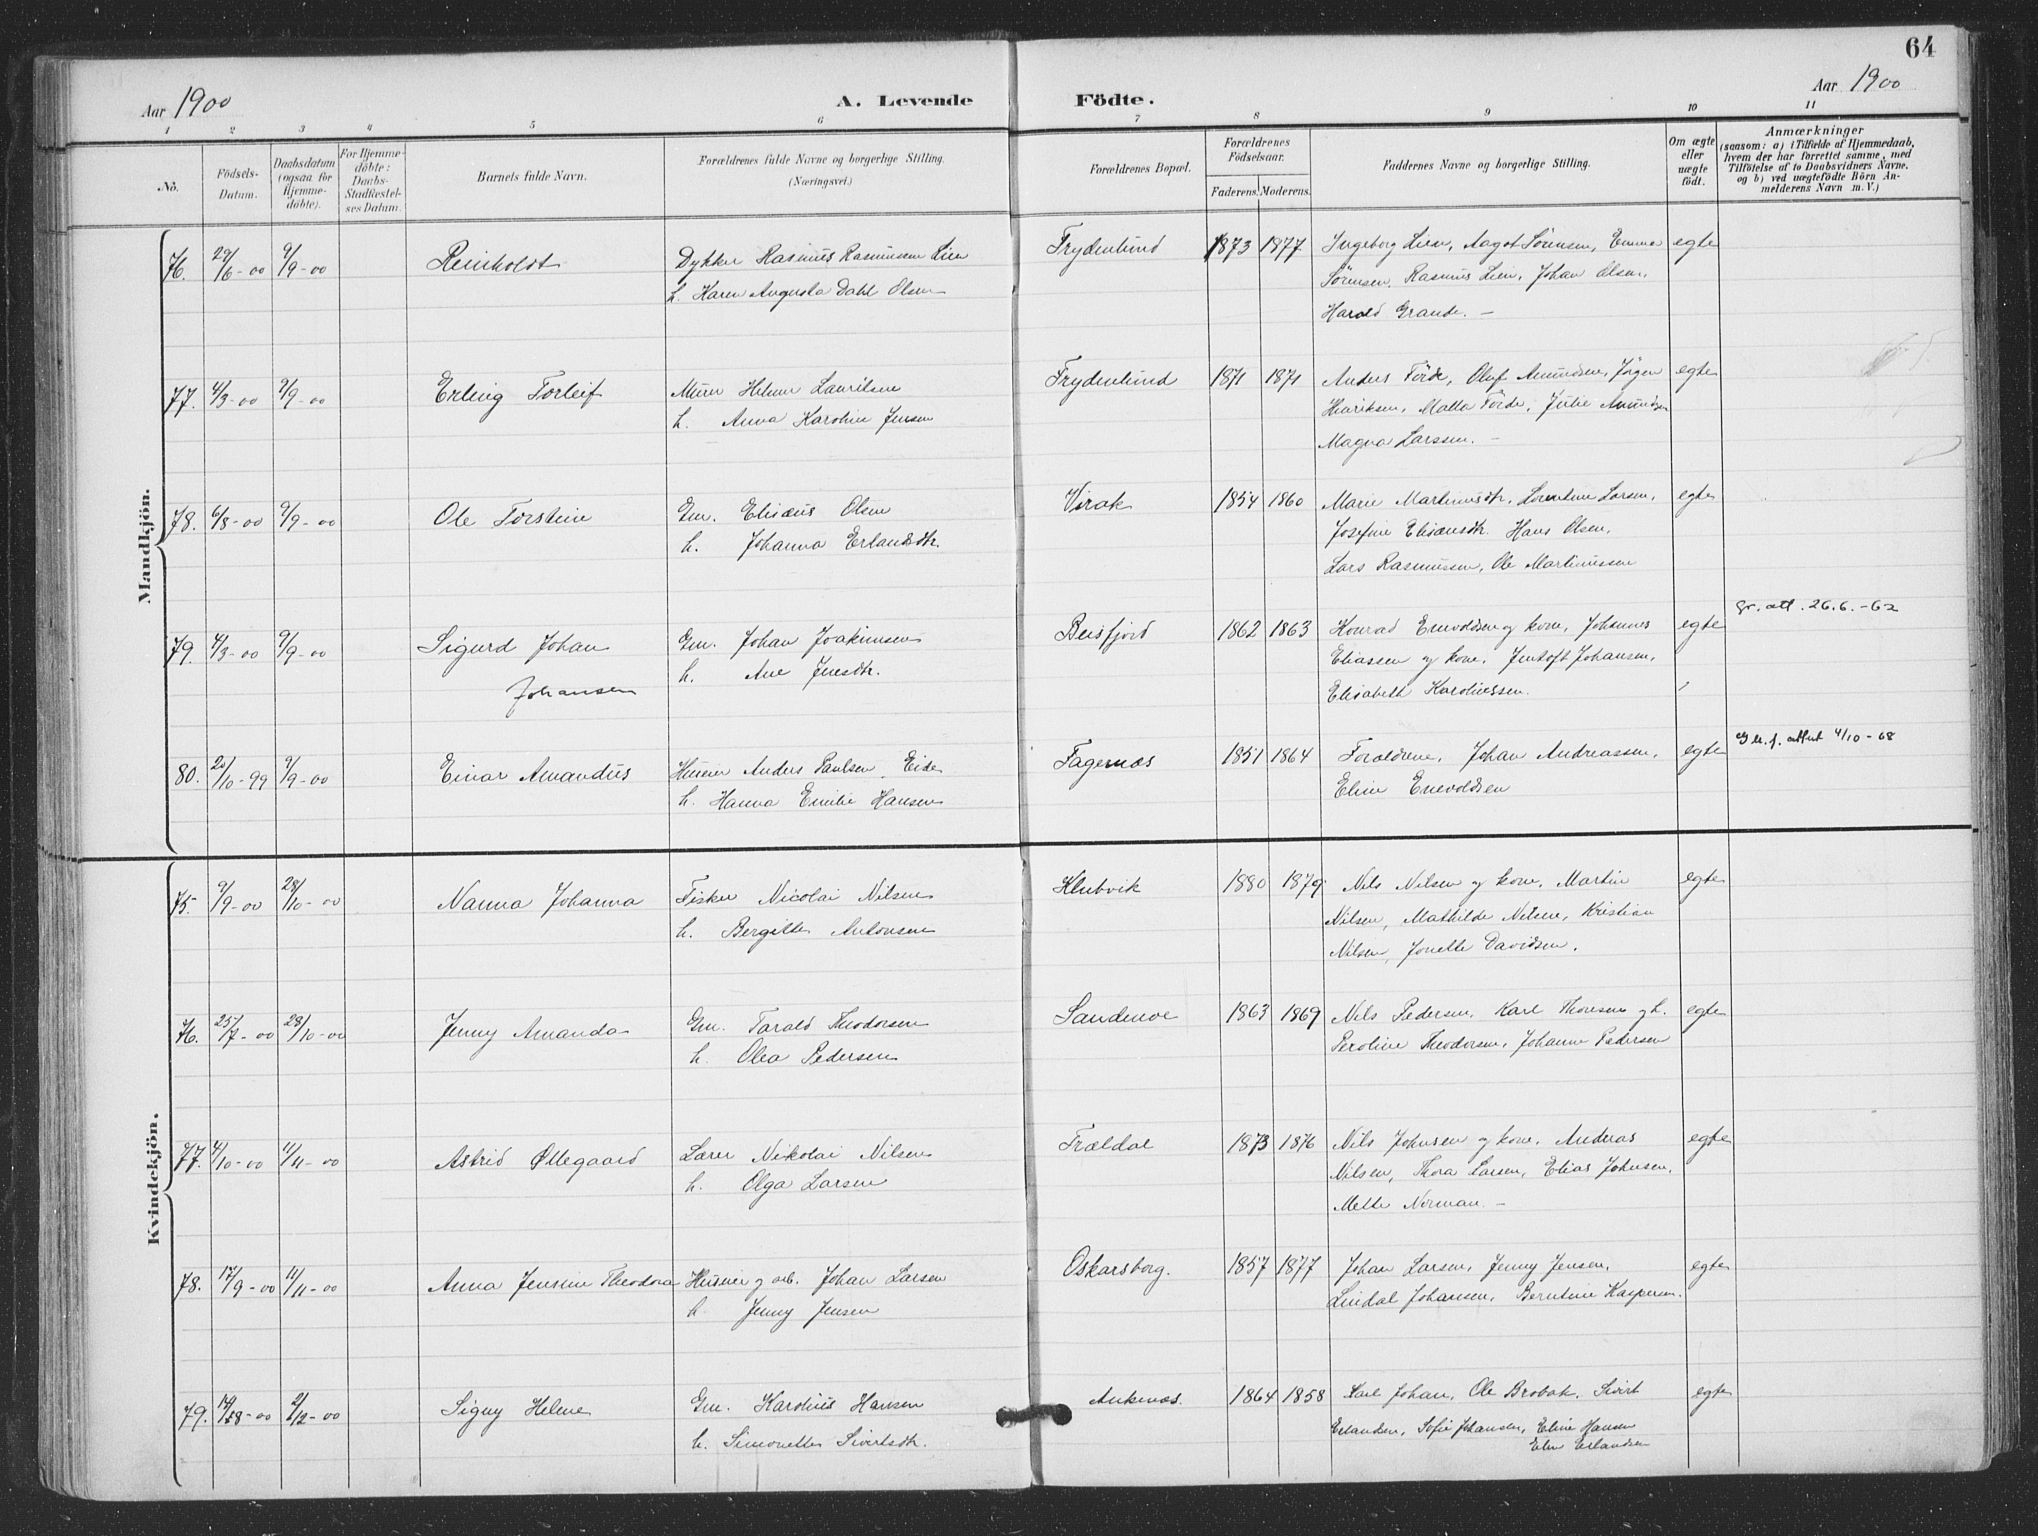 64
Aar 1900 A. Levende Födte. Aar 1900
1 2 3 4 5 6 7 8 9 10 11
No.
Födsels-Datum.
Daabsdatum (ogsaa for Hjemme-döbte).
For Hjemme-döbte: Daabs-Stadfæstelses Datum.
Barnets fulde Navn.
Forældrenes fulde Navne og borgerlige Stilling. (Næringsvei.)
Forældrenes Bopæl.
Forældrenes Födselsaar.
Faderens. Moderens.
Faddernes Navne og borgerlige Stilling.
Om ægte eller uægte födt.
Anmærkninger
(saasom: a) i Tilfælde af Hjemmedaab, hvem der har forrettet samme, med Tilföielse af to Daabsvidners Navne, og b) ved uægtefödte Börn Anmelderens Navn m. V.)
Mandkjön.
76. 29/6-00 9/9-00 Reinholdt Dykker Rasmus Rasmussen Lien Frydenlund 1873 1877 Ingeborg Lien, Aagot Sörensen, Emma egte
h. Karen Augusta Dahl Olsen Sörensen, Rasmus Lien, Johan Olsen,
Harald Grande. –
77. 4/3-00 9/9-00 Erling Torleif Murer Helmer Lauritsen Frydenlund 1871 1871 Anders Förde, Oluf Amundsen, Jörgen egte
h. Anna Karoline Jensen Henriksen, Matta Förde, Julie Amundsen
Magna Larssen. –
78. 6/8-00 9/9-00 Ole Torstein Gm. Elisæus Olsen Virak 1854 1860 Marie Martinusdtr, Lorentine Larsen, egte
h. Johanna Erlandsdtr. Josefine Elisæusdtr. Hans Olsen,
Lars Rasmussen, Ole Martinussen
79. 4/3-00 9/9-00 Sigurd Johan Gm. Johan Joakimsen Beisfjord 1862 1863 Konrad Enevoldsen og kone, Johannes egte gr. att. 26.6.-62
Johansen h. Ane Jensdtr. Eliassen og kone, Jentoft Johansen,
Elisabeth Karolinessen.
80. 20/10-99 9/9-00 Einar Amandus Husmr Anders Paulsen Eide Fagernæs 1851 1864 Forældrene, Johan Andreassen, egte attest 4/10-68
h. Hanna Emilie Hansen Eline Enevoldsen
Kvindekjön.
75. 9/9-00 28/10-00 Nanna Johanna Fisker Nicolai Nilsen Klubvik 1880 1879 Nils Nilsen og kone, Martin egte
h. Bergitte Antonsen Nilsen, Mathilde Nilsen, Kristian
Nilsen, Jonette Davidsen.
76. 25/7-00 28/10-00 Jenny Amanda Gm. Tarald Theodorsen Sandenoe 1863 1869 Nils Pedersen, Karl Thoresen og h. egte
h. Olea Pedersen Peroline Theodorsen, Johanne Pedersen
77. 4/10-00 11/11-00 Astrid Øllegaard Lærer Nikolai Nilsen Trældal 1873 1876 Nils Johnsen og kone, Anderas egte
h. Olga Larsen Nilsen, Thora Larsen, Elias Johnsen,
Mette Norman. –
78. 17/9-00 11/11-00 Anna Jensine Theodora Husmr og arb. Johan Larsen Oskarsborg. 1857 1877 Johan Larsen, Jenny Jensen, egte
h. Jenny Jensen Lindal Johansen, Berntine Kaspersen.
79. 14/8-00 2/12-00 Signy Helene Gm. Karolius Hansen Ankenæs. 1864 1858 Karl Johan, Ole Brobak, Sivert egte
h. Simonette Sivertsdtr. Erlandsen, Sofie Johansen, Eline Hansen
Elen Erlandsen